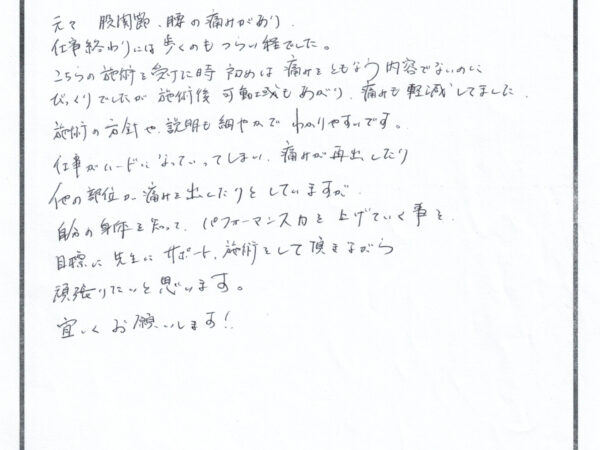 元々 股関節、腰の痛みがあり、
仕事終わりには歩くのもつらい程でした。
こちらの施術を受けた時 初めは 痛みをともなう内容でないのに
びっくりでしたが 施術後 可動域もあがり、痛みも軽減してました。
施術の方針や、説明も細やかで わかりやすいです。
仕事がハードになっていってしまい、痛みが再出したり
他の部位が痛みを出したりをしていますが、
自分の身体を知って、パフォーマンス力を上げていく事を
目標に 先生に サポート、施術をして頂きながら
頑張りたいと思います。
宜しくお願いします!